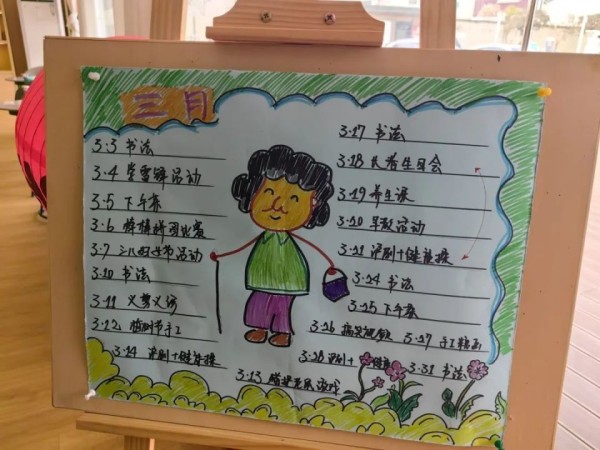 三月
3·3 书法
3·4 学雷锋活动
3·5 下午茶
3·6 比赛
3·7 三八妇女节活动
3·10 书法
3·11 义剪义诊
3·12 植树节手工
3·14 沪剧+
3·13
3·17 书法
3·18 长者生日会
3·19 养生课
3·20 早教活动
3·21 沪剧+
3·24 书法
3·25 下午茶
3·26 搞笑视频 3·27 手工
3·28 沪剧+
3·31 书法